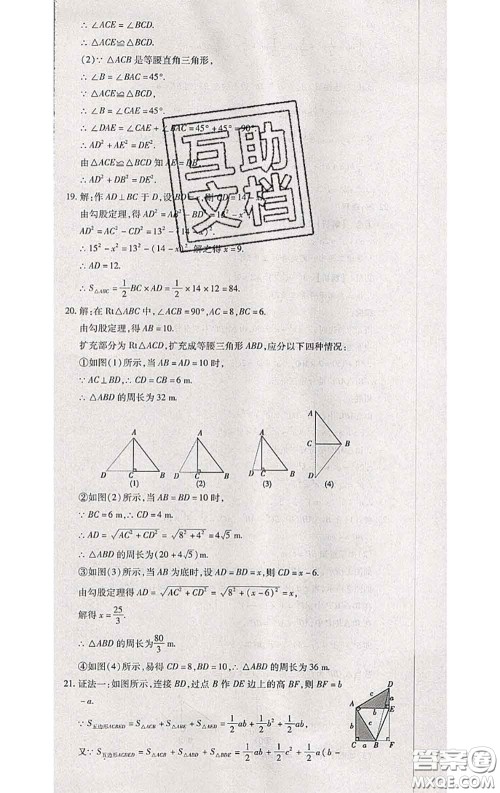 ∴ ∠ACE = ∠BCD.
∴ △ACE≌△BCD.
(2)∵ △ACB 是等腰直角三角形,
∴ ∠B = ∠BAC = 45°.
∵ △ACE≌△BCD,
∴ ∠CAE = ∠B = 45°.
∴ ∠DAE = ∠CAE + ∠BAC = 45° + 45° = 90°
∴ AD² + AE² = DE².
由△ACE≌△BCD 知 AE =
∴ AD² + = DE².
19. 解:作 AD⊥BC 于 D,设 BD = , CD = 14 -
由勾股定理,得 AD² = AB² - = -
AD² = AC² - CD² = 13² - (14 -
∴ 15² - x² = 13² - (14 - . 解之得 x = 9.
∴ AD = 12.
∴ S△ABC = 1/2 BC × AD = 1/2 × 14 × 12 = 84.
20. 解:在 Rt△ABC 中,∠ACB = 90°, AC = 8, BC = 6.
由勾股定理,得 AB = 10.
扩充部分为 Rt△ACD, 扩充成等腰三角形 ABD, 应分以下四种情况:
①如图(1)所示,当 AB = AD = 10 时,
∵ AC⊥BD, ∴ CD = CB = 6 m.
∴ △ABD 的周长为 32 m.
A D C B (1)
A D C B (2)
A D C B (3)
A C B D (4)
②如图(2)所示,当 AB = BD = 10 时,
∵ BC = 6 m, ∴ CD = 4 m.
∴ AD = √(AC² + CD²) = √(8² + 4²) = 4√5 m.
∴ △ABD 的周长为(20 + 4√5) m.
③如图(3)所示,当 AB 为底时,设 AD = BD = x, 则 CD = x - 6.
由勾股定理得 AD = √(AC² + CD²) = √(8² + (x - 6)²) = x.
解得 x = 25/3.
∴ △ABD 的周长为 80/3 m.
④如图(4)所示,易得 CD = 8, BD = 10, ∴ △ABD 的周长为 36 m.
21. 证法一:如图所示,连接 BD, 过点 B 作 DE 边上的高 BF, 则 BF = b
- a.
∵ S五边形ACBED = S△ACB + S△ABE + S△ADE = 1/2 ab + 1/2 b² + 1/2 ab,
又∵ S五边形ACBED = S△ACB + S△ABD + S△BDE = 1/2 ab + 1/2 c² + 1/2 a(b -
D c a A b E b c C a B F
互助
文档
答案圈
MXQE.COM